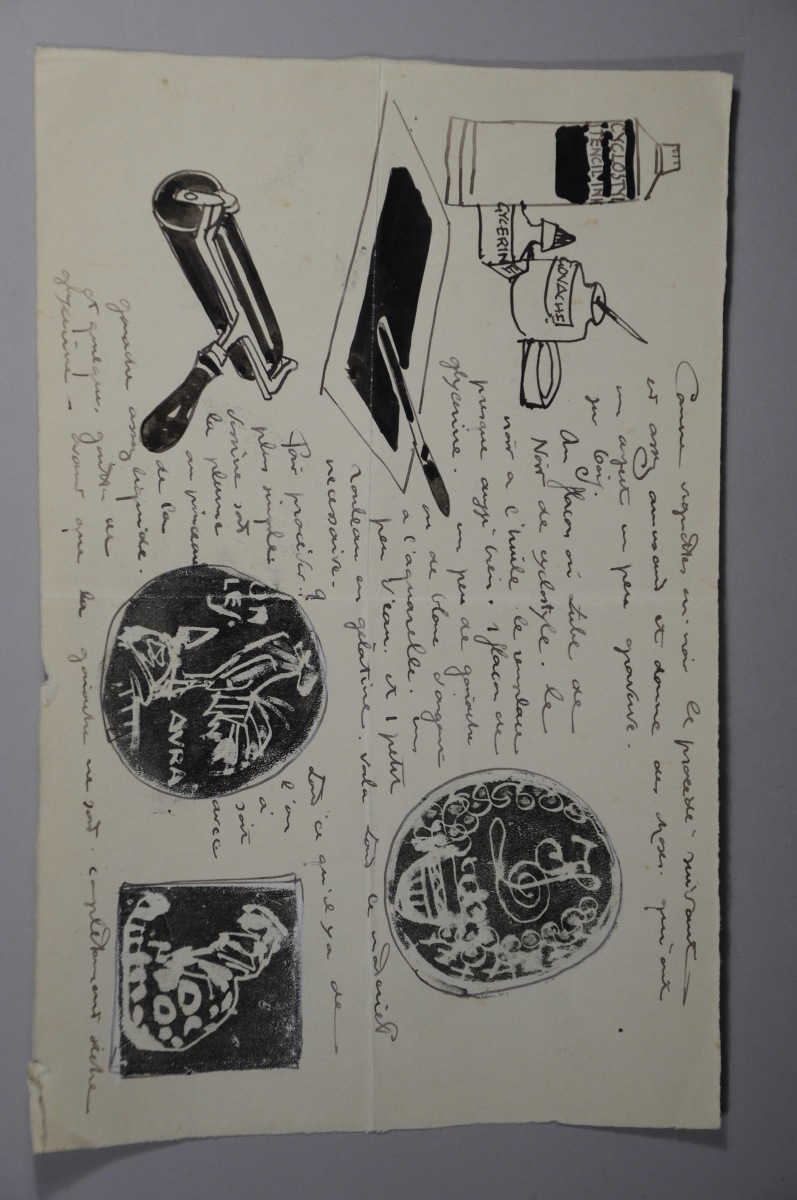 CYCLOSTY
STENCIL INK
GLYCERINE
GOUACHE
Comme vignettes en noir le procédé suivant
est assez amusant et donne des noirs qui ont
un aspect un peu gravure.
sur bois.
Un flacon ou tube de
Noir de cyclostyle. le
noir a l'huile le remplace
presque aussi bien. 1 flacon de
glycerine. un peu de gouache
ou de blanc d'argent
a l'aquarelle. un
peu d'eau. et 1 petit
rouleau en gelatine. voila tout le materiel
necessaire.
Tout ce qu'il y a de
plus simple
l'on
dessine soit à
la plume soit
au pinceau avec
de la
gouache assez liquide.
et quelques gouttes de
glycerine). avant que la gouache ne soit completement sèche
LES.
AVRA